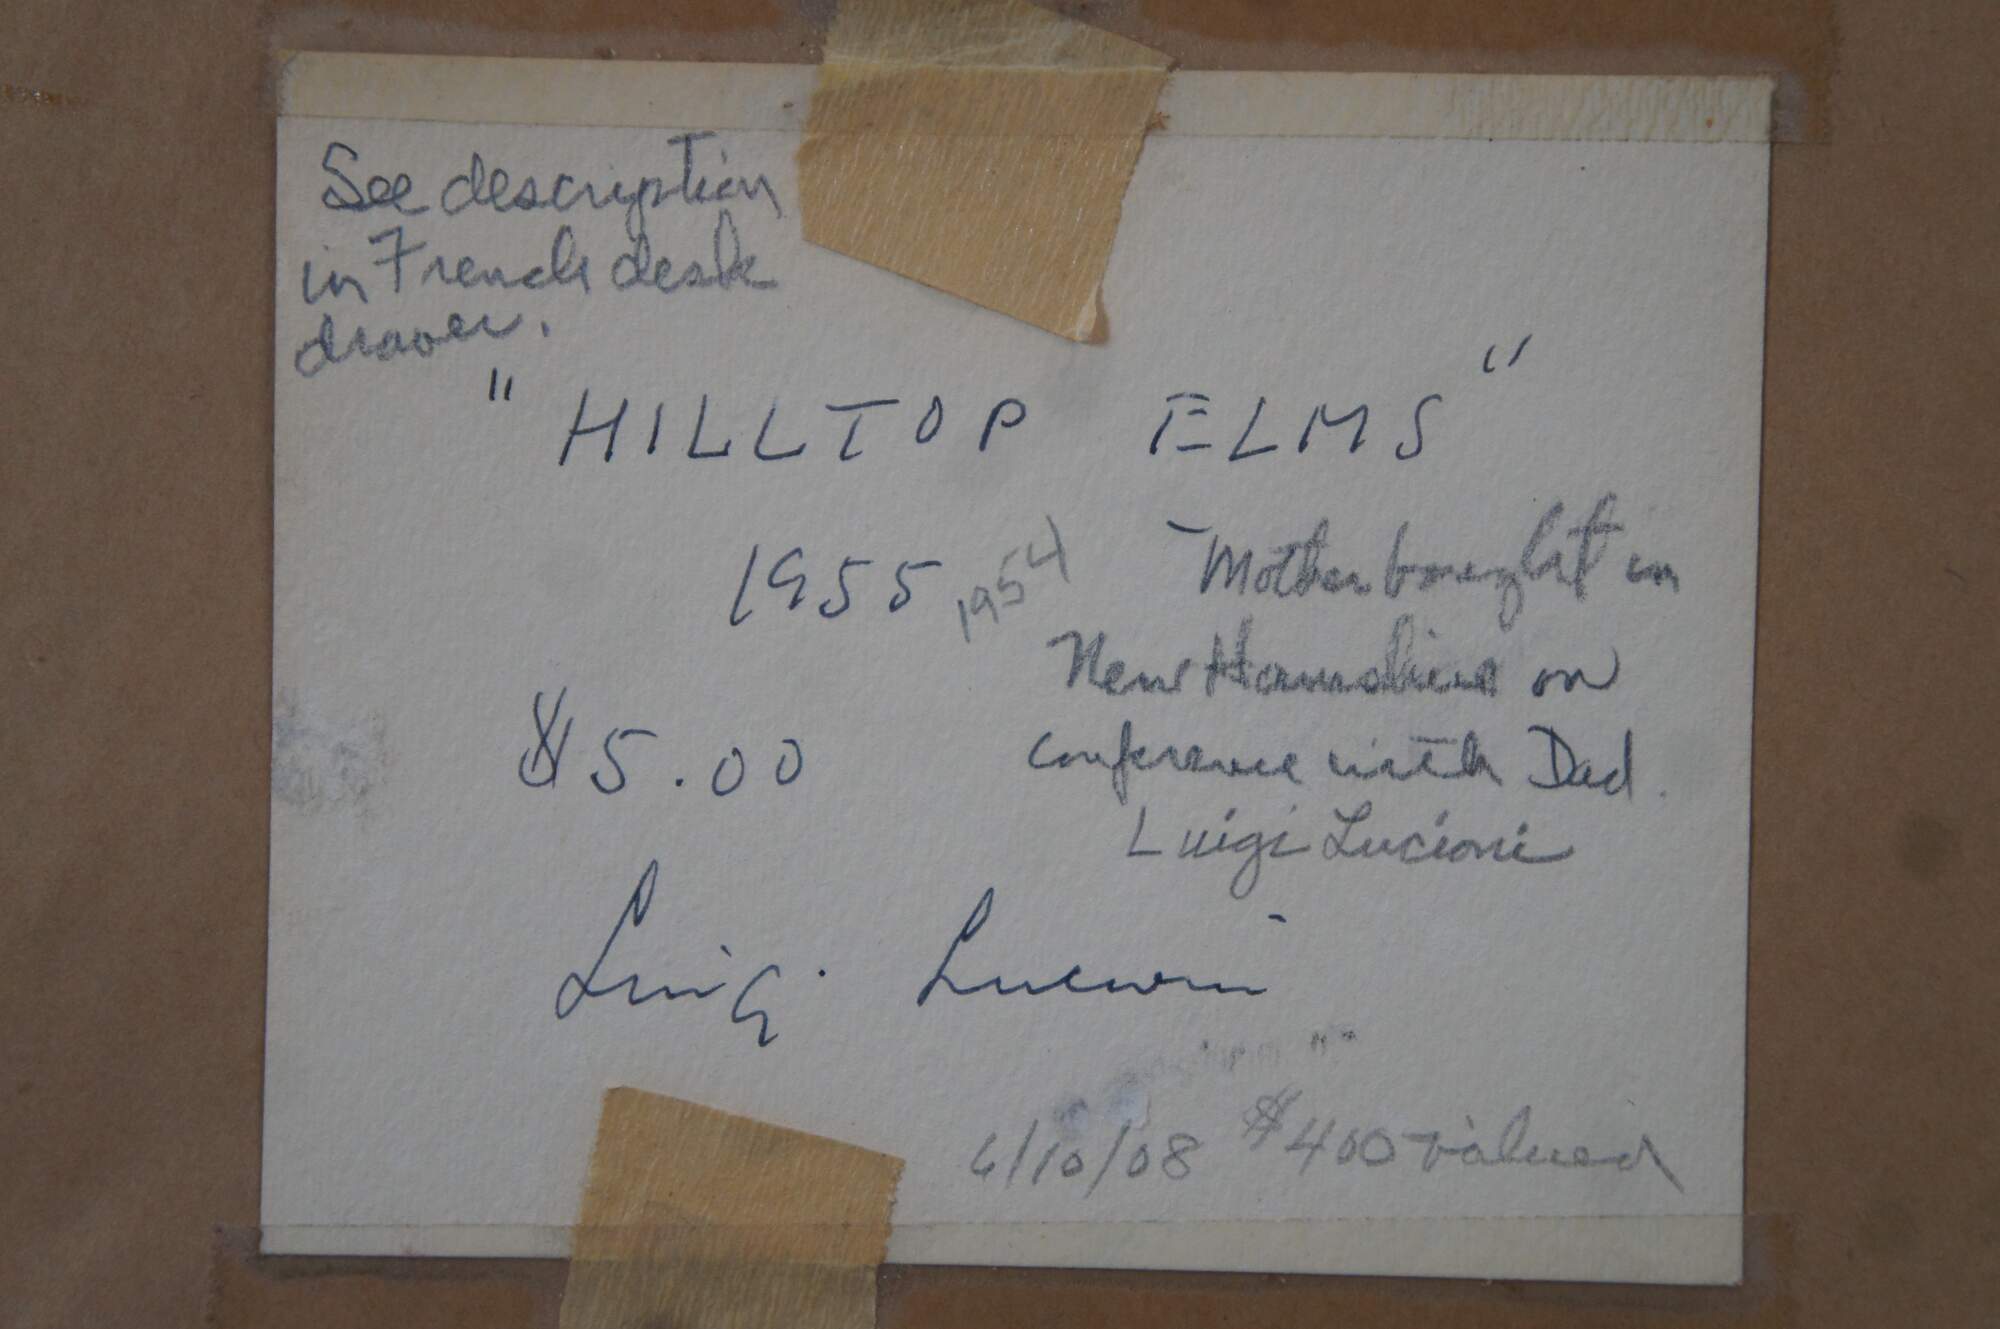 See description
in French desk
drawer.
"HILLTOP ELMS"
1955 1954
- Mother bought in
New Hampshire on
conference with Dad.
Luigi Lucioni
$5.00
Luigi Lucioni
6/10/08 $400 valued